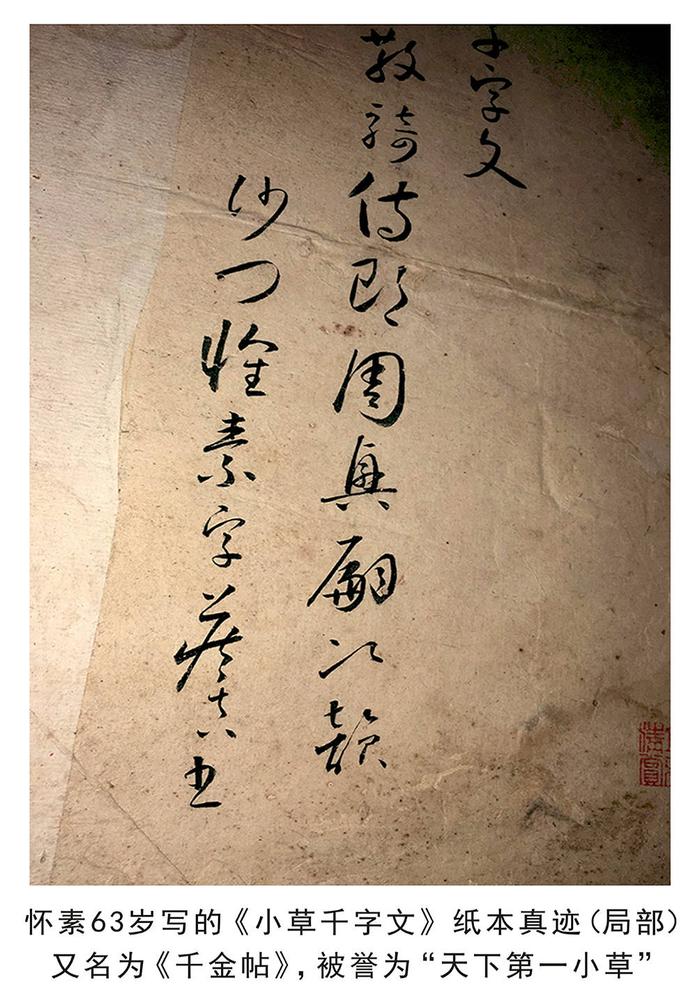 千字文
散騎侍郎周興嗣次韻
沙門懷素字藏真書
怀素63岁写的《小草千字文》纸本真迹(局部)
又名为《千金帖》,被誉为“天下第一小草”